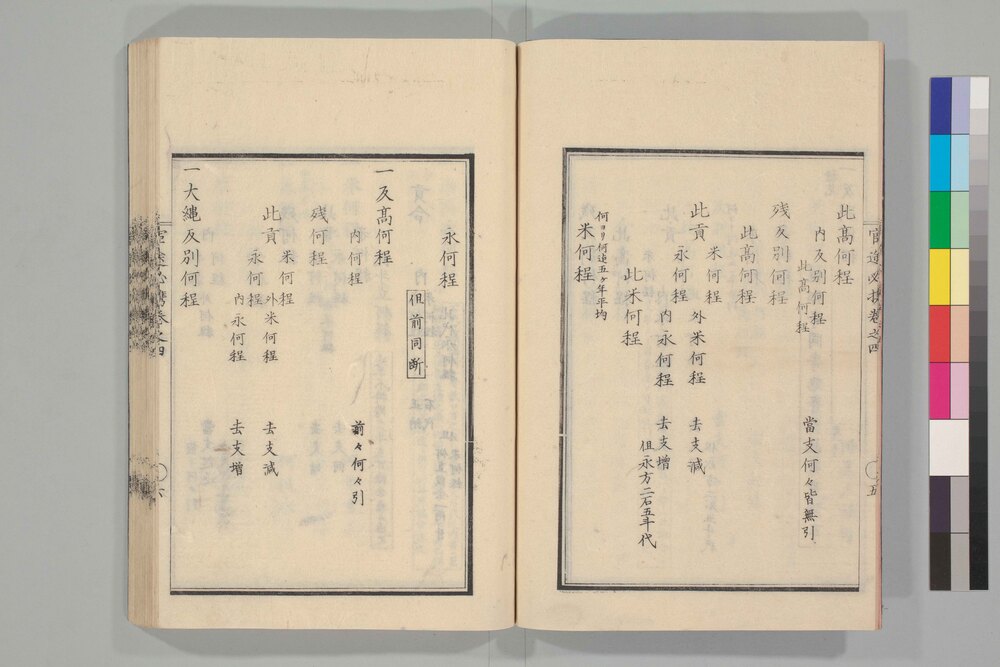 此高何程
内反別何程
此高何程
當支何々皆無引
残反別何程
此高何程
米何程
此貢
外米何程
去支減
永何程
内永何程
去支増
但永方二石五斗代
此米何程
何ヨリ何迄五ヶ年平均
米何程
五
永何程
但前同断
一反高何程
内何程
前々何々引
残何程
米何程
此貢
外米何程
去支減
永何程
内永何程
去支増
一大縄反別何程
六